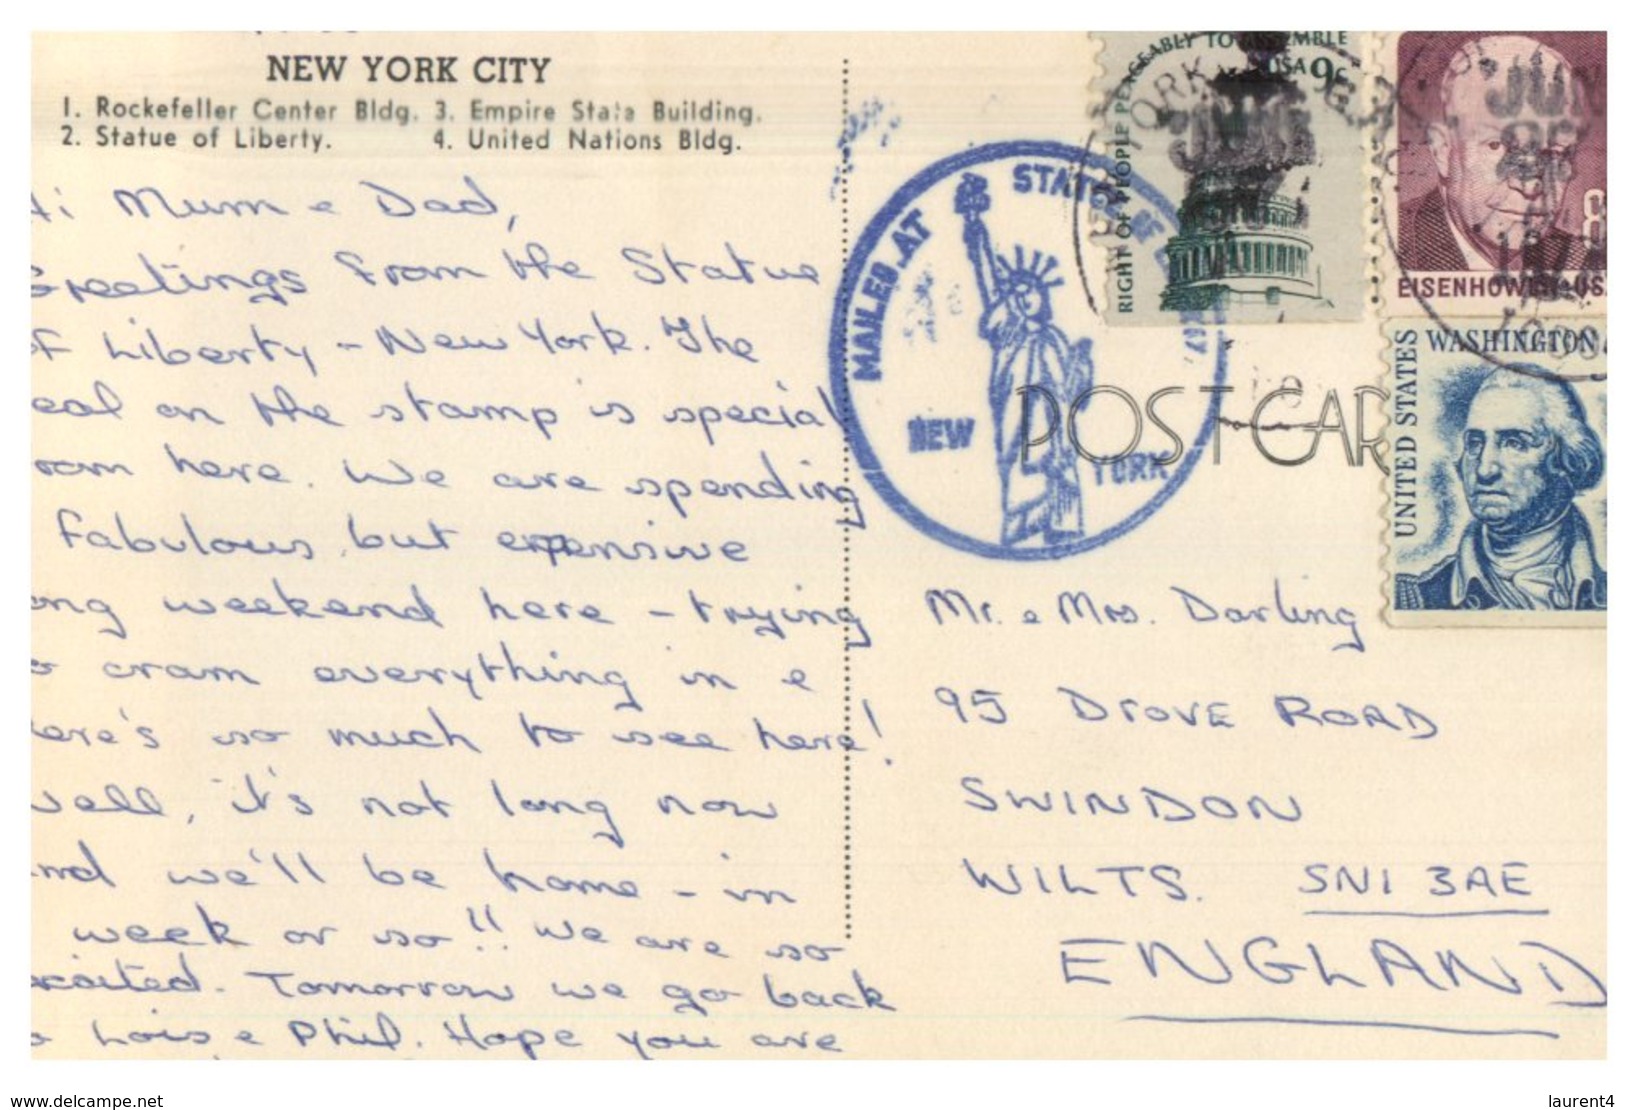 NEW YORK CITY
1. Rockefeller Center Bldg. 3. Empire State Building.
2. Statue of Liberty. 4. United Nations Bldg.
Hi Mum & Dad,
Greetings from the Statue
of Liberty - New York. The
eal on the stamp is special
rom here. We are spending
fabulous, but expensive
ong weekend here - trying
o cram everything in &
here's so much to see here!
Well, it's not long now
and we'll be home - in
week or so!! We are so
excited. Tomorrow we go back
o Lois & Phil. Hope you are
MAILED AT STATUE OF
NEW YORK
RIGHT OF PEOPLE PEACEABLY TO ASSEMBLE
USA 9c
YORK
JUN
EISENHOWER USA
8
JUN
25
UNITED STATES
WASHINGTON
POSTCAR
Mr. & Mrs. Darling
95 DROVE ROAD
SWINDON
WILTS. SN1 3AE
ENGLAND
www.delcampe.net
laurent4